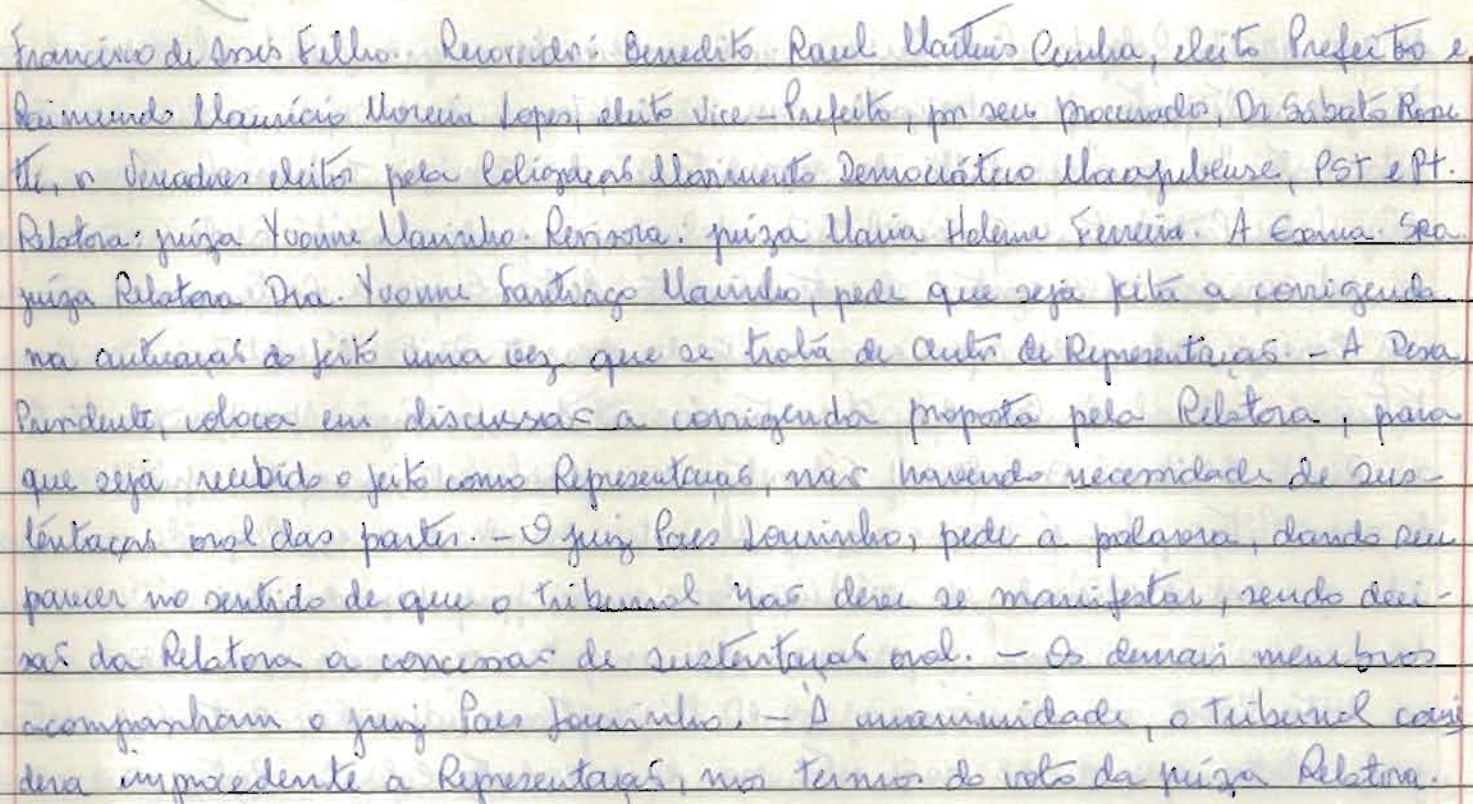 Francisco de Assis Filho. Recorridos: Benedito Raul Martins Cunha, eleito Prefeito e
Raimundo Maurício Moreira Lopes, eleito Vice-Prefeito, por seu procurador, Dr. Sábato Rose
tti, os Vereadores eleitos pela Coligação Movimento Democrático Maracajubense, PST e PT.
Relatora: juíza Yvonne Marinho. Revisora: juíza Maria Helena Ferreira. A Exma. Sra.
juíza Relatora Dra. Yvonne Santiago Marinho, pede que seja feita a corrigenda
na autuação do feito uma vez que se trata de autos de Representação. - A Desa.
Presidente, coloca em discussão a corrigenda proposta pela Relatora, para
que seja recebido o feito como Representação, não havendo necessidade de sus-
tentação oral das partes. - O juiz Paes Lourinho, pede a palavra, dando seu
parecer no sentido de que o tribunal não deve se manifestar, sendo deci-
são da Relatora a concessão de sustentação oral. - Os demais membros
acompanham o juiz Paes Lourinho. - À unanimidade, o Tribunal consi
dera improcedente a Representação, nos termos do voto da juíza Relatora.